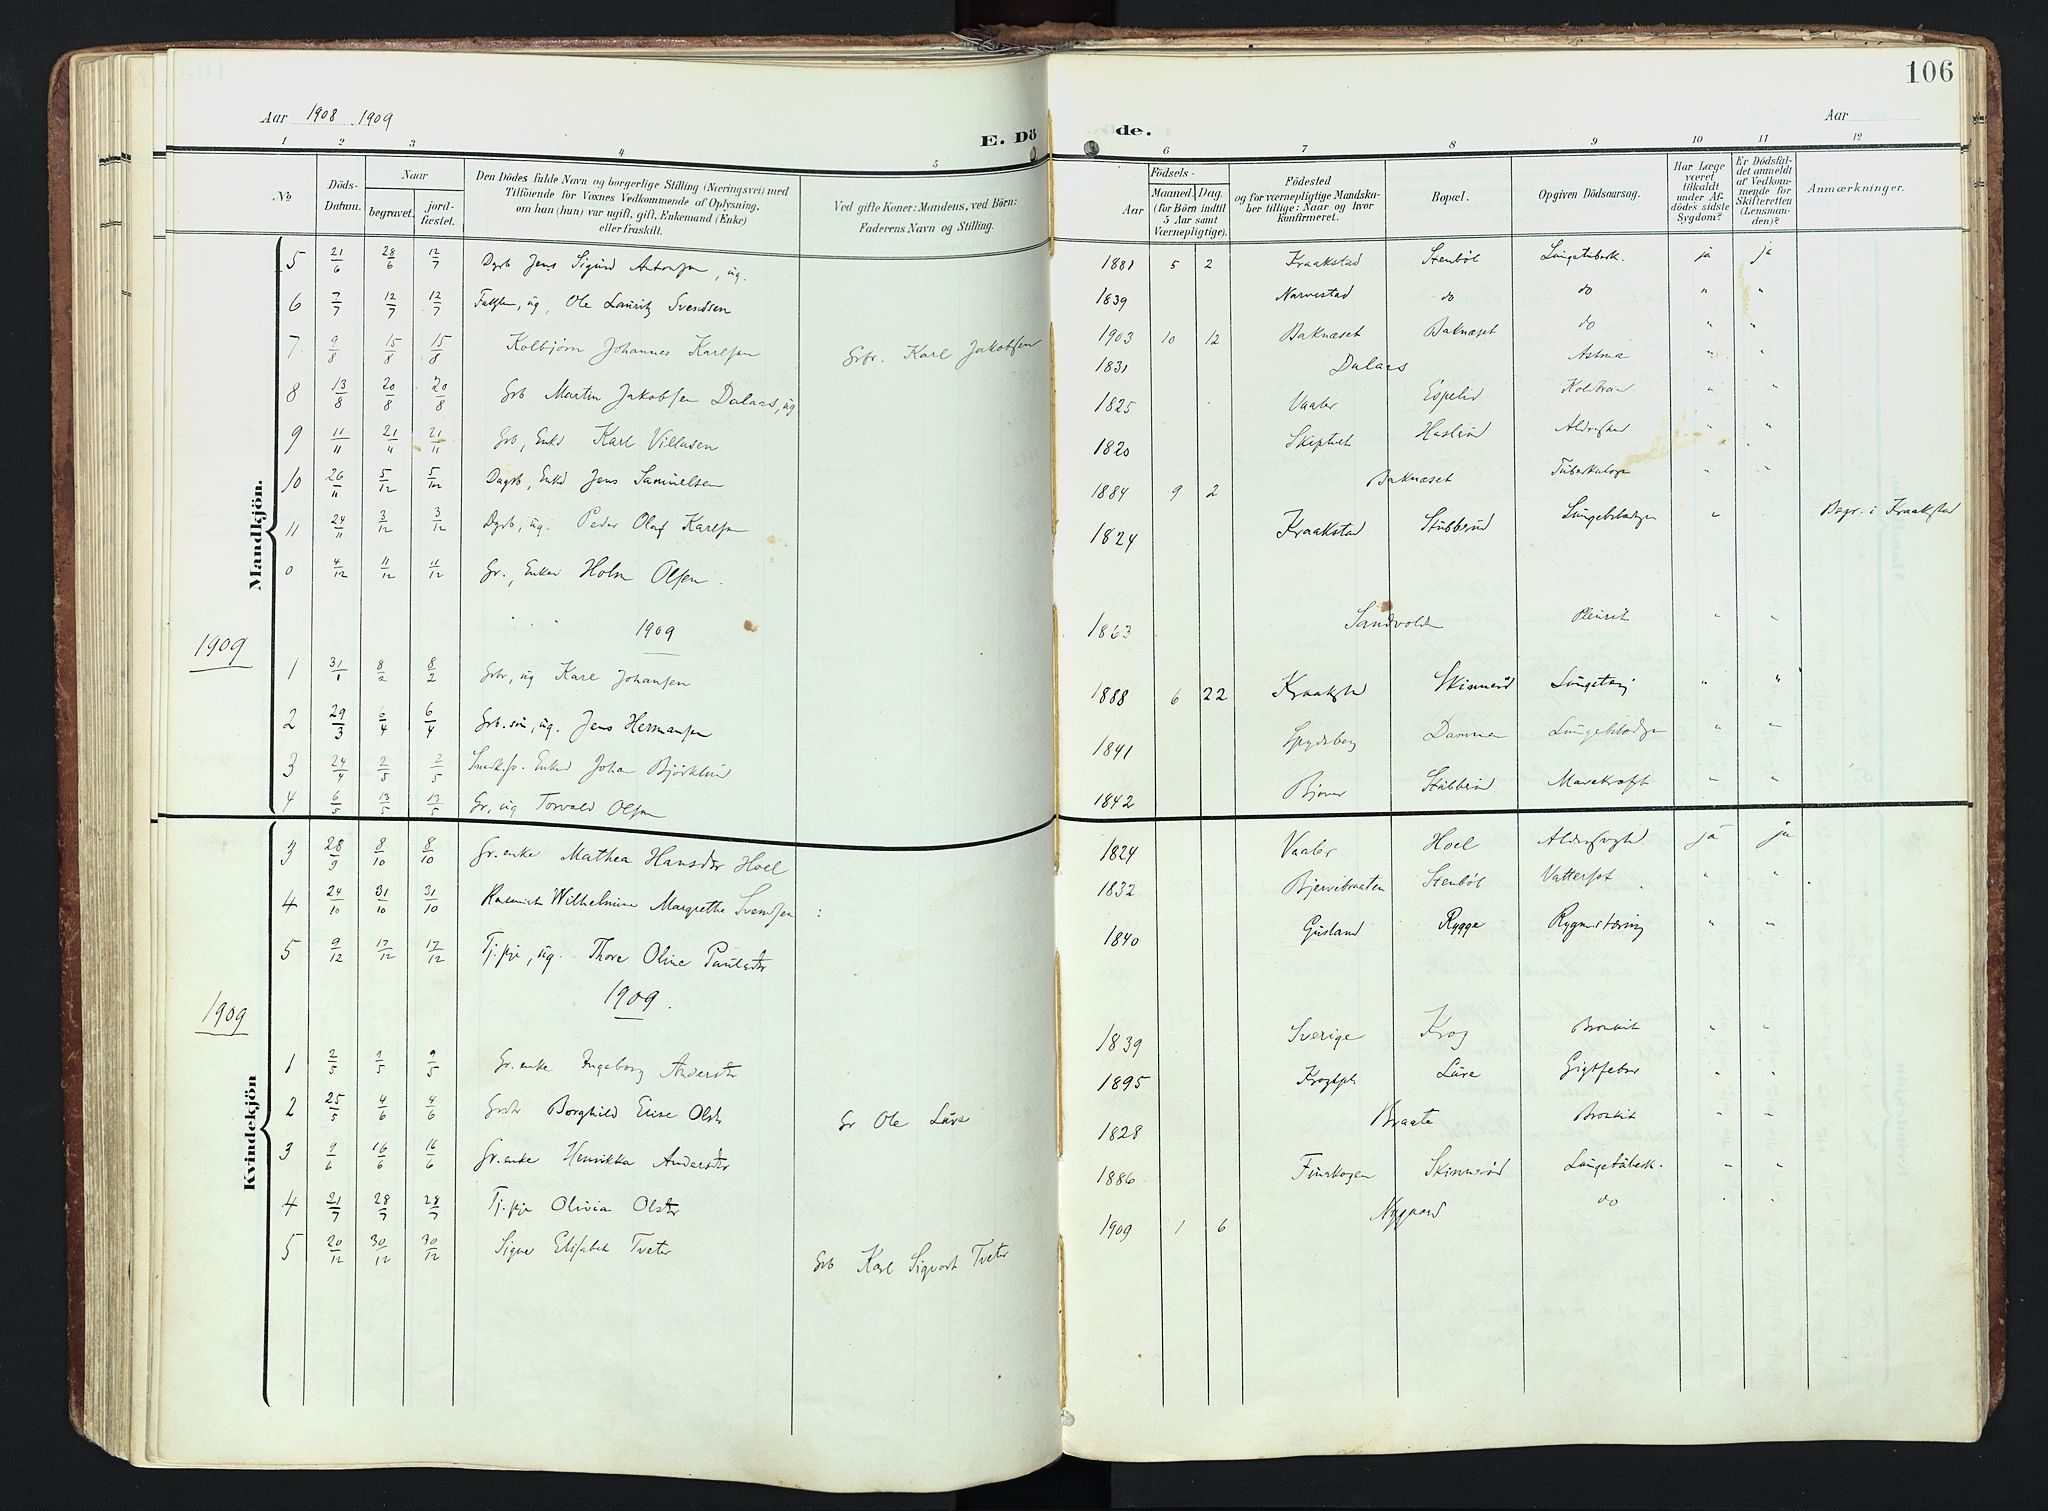 106
Aar 1908 1909
Aar
E. Dö de.
1 2 3 4 5 6 7 8 9 10 11 12
No
Döds-Datum.
Naar
begravet.
jord-fæstet.
Den Dödes fulde Navn og borgerlige Stilling (Næringsvei) med
Tilföiende for Voxnes Vedkommende af Oplysning,
om han (hun) var ugift, gift, Enkemand (Enke)
eller fraskilt.
Ved gifte Koner: Mandens, ved Börn:
Faderens Navn og Stilling.
Födsels-
Aar
Maaned. Dag.
(for Börn indtil
5 Aar samt
Værnepligtige).
Födested
og for værnepligtige Mandska-
ber tillige: Naar og hvor
konfirmeret.
Bopæl.
Opgiven Dödsaarsag.
Har Læge
været
tilkaldt
under Af-
dödes sidste
Sygdom?
Er Dödsfal-
det anmeldt
af Vedkom-
mende for
Skifteretten
(Lensman-
den)?
Anmærkninger.
Mandkjön.
5 21/6 28/6 12/7 Jens Sigurd Antonsen, ug. 1881 5 2 Kraakstad Stenböl Lungetuberk. ja ja
6 7/7 12/7 12/7 ug, Ole Lauritz Svendsen 1839 Narvestad do do " "
7 9/8 15/8 15/8 Kolbjørn Johannes Karlsen Grbr. Karl Jakobsen 1903 10 12 Baknæset Baknæset do " "
8 13/8 20/8 20/8 Grb Martin Jakobsen Dalaas, ug 1831 Dalaas Astma " "
9 11/11 21/11 21/11 Grb, Enkd Karl Villasen 1825 Vaaler Espelid " "
10 26/11 5/12 5/12 Dagrb, Enkd Jens Samuelsen 1820 Skiptvet " "
11 24/11 3/12 3/12 Dgrb, ug. Peder Olaf Karlsen 1884 9 2 Baknæset Tuberkulose " "
0 4/12 11/12 11/12 Gr., Enkem Holm Olsen. 1824 Kraakstad Stubberud " Begr. i Kraakstad
1909
1909
1 31/1 8/2 8/2 Grbr, ug Karl Johansen 1863 Sandvold Pleurit " "
2 29/3 6/4 6/4 Grb.søn, ug. Jens Hermansen 1888 6 22 Kraakstd Skinneröd " "
3 24/4 2/5 2/5 Enkd Johan Björklund 1841 Spydeberg Dammen " "
4 6/5 13/5 13/5 Gr, ug Torvald Olsen 1842 Stubberud Mavekræft " "
Kvindekjön
3 28/9 8/10 8/10 Gr.enke Mathea Hansdtr Hoel 1824 Vaaler Hoel ja ja
4 24/10 31/10 31/10 Wilhelmine Margrethe Svendsen 1832 Stenböl Vattersot " "
5 9/12 17/12 17/12 Tj.pge, ug. Thore Oline Paulsdtr 1840 Gusland Rygge " "
1909.
1909
1 2/5 9/5 9/5 Gr.enke Ingeborg Andersdtr 1839 Sverige Krog Bronkit " "
2 25/5 4/6 4/6 Grdtr Borghild Elise Olsdtr Gr Ole Lüre 1895 Lüre Gigtfeber " "
3 9/6 16/6 16/6 Gr.enke Henrikka Andersdtr 1828 Braate Bronkit " "
4 21/7 28/7 28/7 Tj.pge Olivia Olsdtr 1886 Finskogen Skinneröd Lungetuberk. " "
5 20/12 30/12 30/12 Signe Elisabet Tveter Grb Karl Sigvart Tveter 1909 1 6 Nygaard do " "